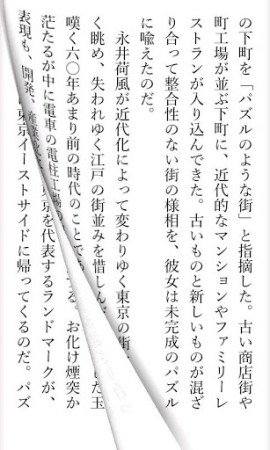 の下町を「パズルのような街」と指摘した。古い商店街や
町工場が並ぶ下町に、近代的なマンションやファミリーレ
ストランが入り込んできた。古いものと新しいものが混ざ
り合って整合性のない街の様相を、彼女は未完成のパズル
に喩えたのだ。
永井荷風が近代化によって変わりゆく東京の街
く眺め、失われゆく江戸の街並みを惜しんだ した玉
嘆く六〇年あまり前の時代のことで る。お化け煙突か
茫たるが中に電車の電柱工場の 京を代表するランドマークが、
表現も、開発、産業 東京イーストサイドに帰ってくるのだ。パズ